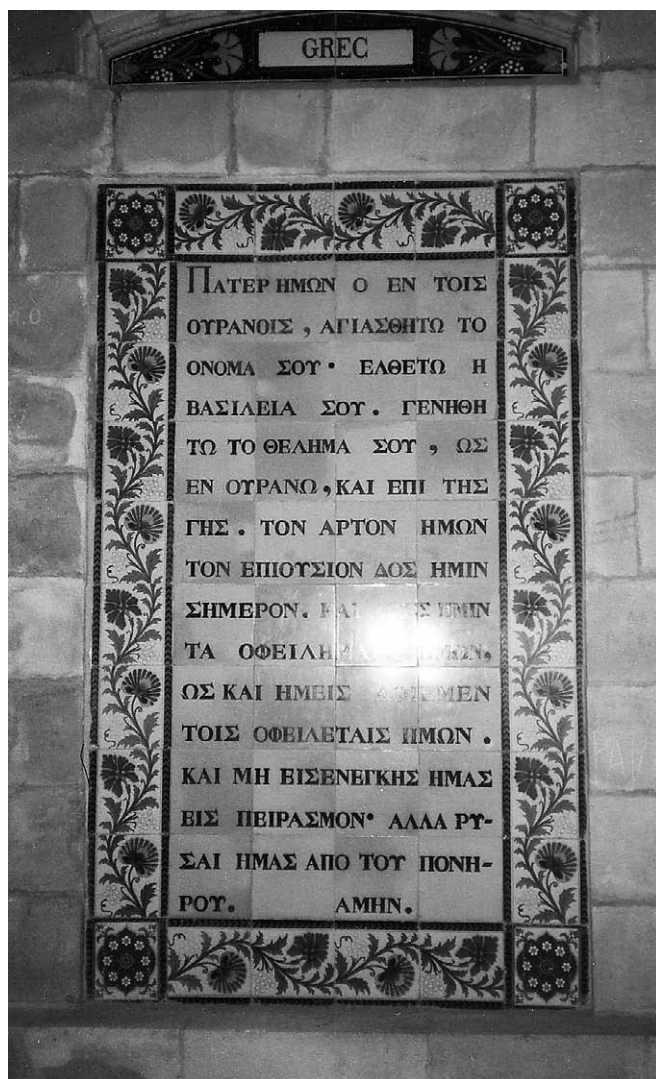 GREC
ΠΑΤΕΡ ΗΜΩΝ Ο ΕΝ ΤΟΙΣ
ΟΥΡΑΝΟΙΣ , ΑΓΙΑΣΘΗΤΩ ΤΟ
ΟΝΟΜΑ ΣΟΥ· ΕΛΘΕΤΩ Η
ΒΑΣΙΛΕΙΑ ΣΟΥ. ΓΕΝΗΘΗ
ΤΩ ΤΟ ΘΕΛΗΜΑ ΣΟΥ , ΩΣ
ΕΝ ΟΥΡΑΝΩ, ΚΑΙ ΕΠΙ ΤΗΣ
ΓΗΣ . ΤΟΝ ΑΡΤΟΝ ΗΜΩΝ
ΤΟΝ ΕΠΙΟΥΣΙΟΝ ΔΟΣ ΗΜΙΝ
ΣΗΜΕΡΟΝ. ΚΑΙ
ΤΑ
ΩΣ ΚΑΙ ΗΜΕΙΣ
ΤΟΙΣ ΟΦΕΙΛΕΤΑΙΣ ΗΜΩΝ .
ΚΑΙ ΜΗ ΕΙΣΕΝΕΓΚΗΣ ΗΜΑΣ
ΕΙΣ ΠΕΙΡΑΣΜΟΝ· ΑΛΛΑ ΡΥ-
ΣΑΙ ΗΜΑΣ ΑΠΟ ΤΟΥ ΠΟΝΗ-
ΡΟΥ. ΑΜΗΝ.